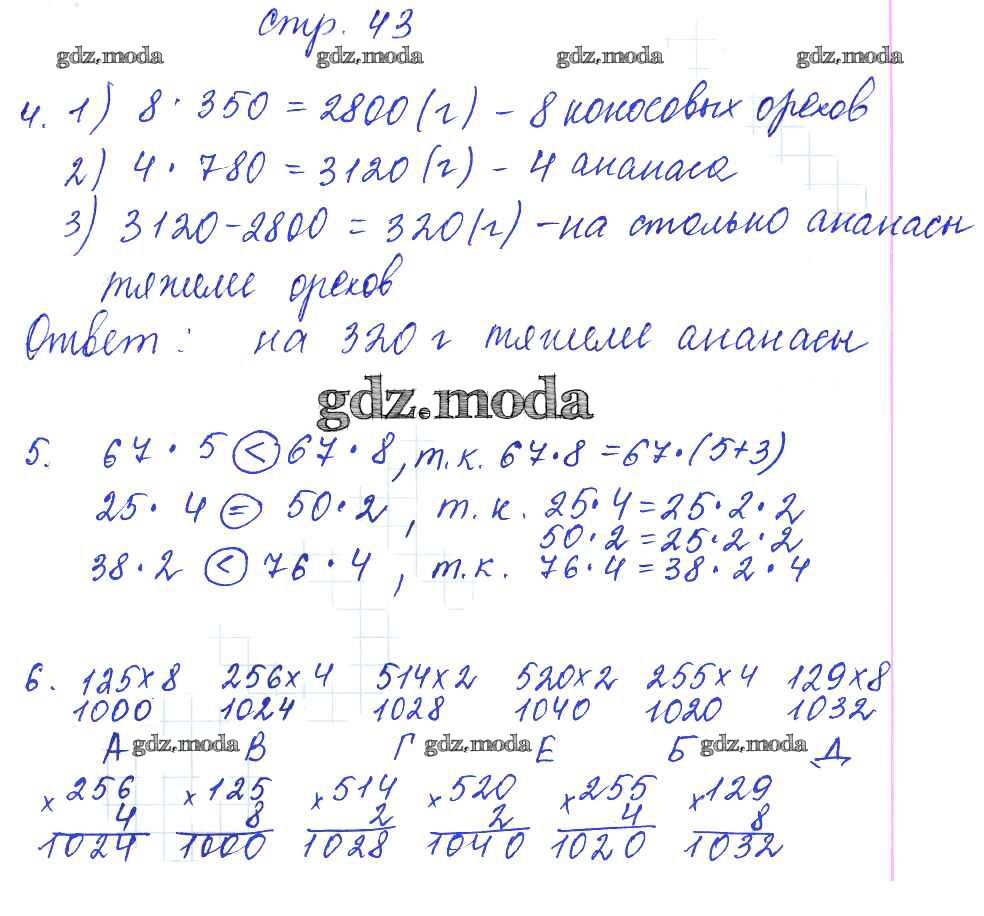 стр. 43
gdz.moda gdz.moda gdz.moda gdz.moda
4. 1) 8 · 350 = 2800 (г) – 8 кокосовых орехов
2) 4 · 780 = 3120 (г) – 4 ананаса
3) 3120 – 2800 = 320 (г) – на столько ананасы
тяжелее орехов
Ответ: на 320 г тяжелее ананасы
gdz.moda
5. 67 · 5 < 67 · 8, т.к. 67 · 8 = 67 · (5+3)
25 · 4 = 50 · 2, т.к. 25 · 4 = 25 · 2 · 2
50 · 2 = 25 · 2 · 2
38 · 2 < 76 · 4, т.к. 76 · 4 = 38 · 2 · 4
6. 125 x 8 256 x 4 514 x 2 520 x 2 255 x 4 129 x 8
1000 1024 1028 1040 1020 1032
А gdz.moda В Г gdz.moda Е Б gdz.moda Д
x 256 x 125 x 514 x 520 x 255 x 129
4 8 2 2 4 8
1024 1000 1028 1040 1020 1032